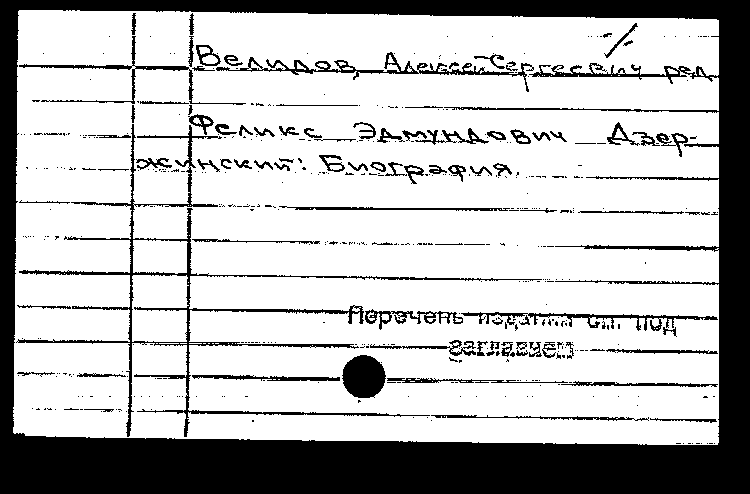 Велидов, Алексей Сергеевич ред.
Феликс Эдмундович Дзер-
жинский: Биография.
Перечень изданий см. под
заглавием